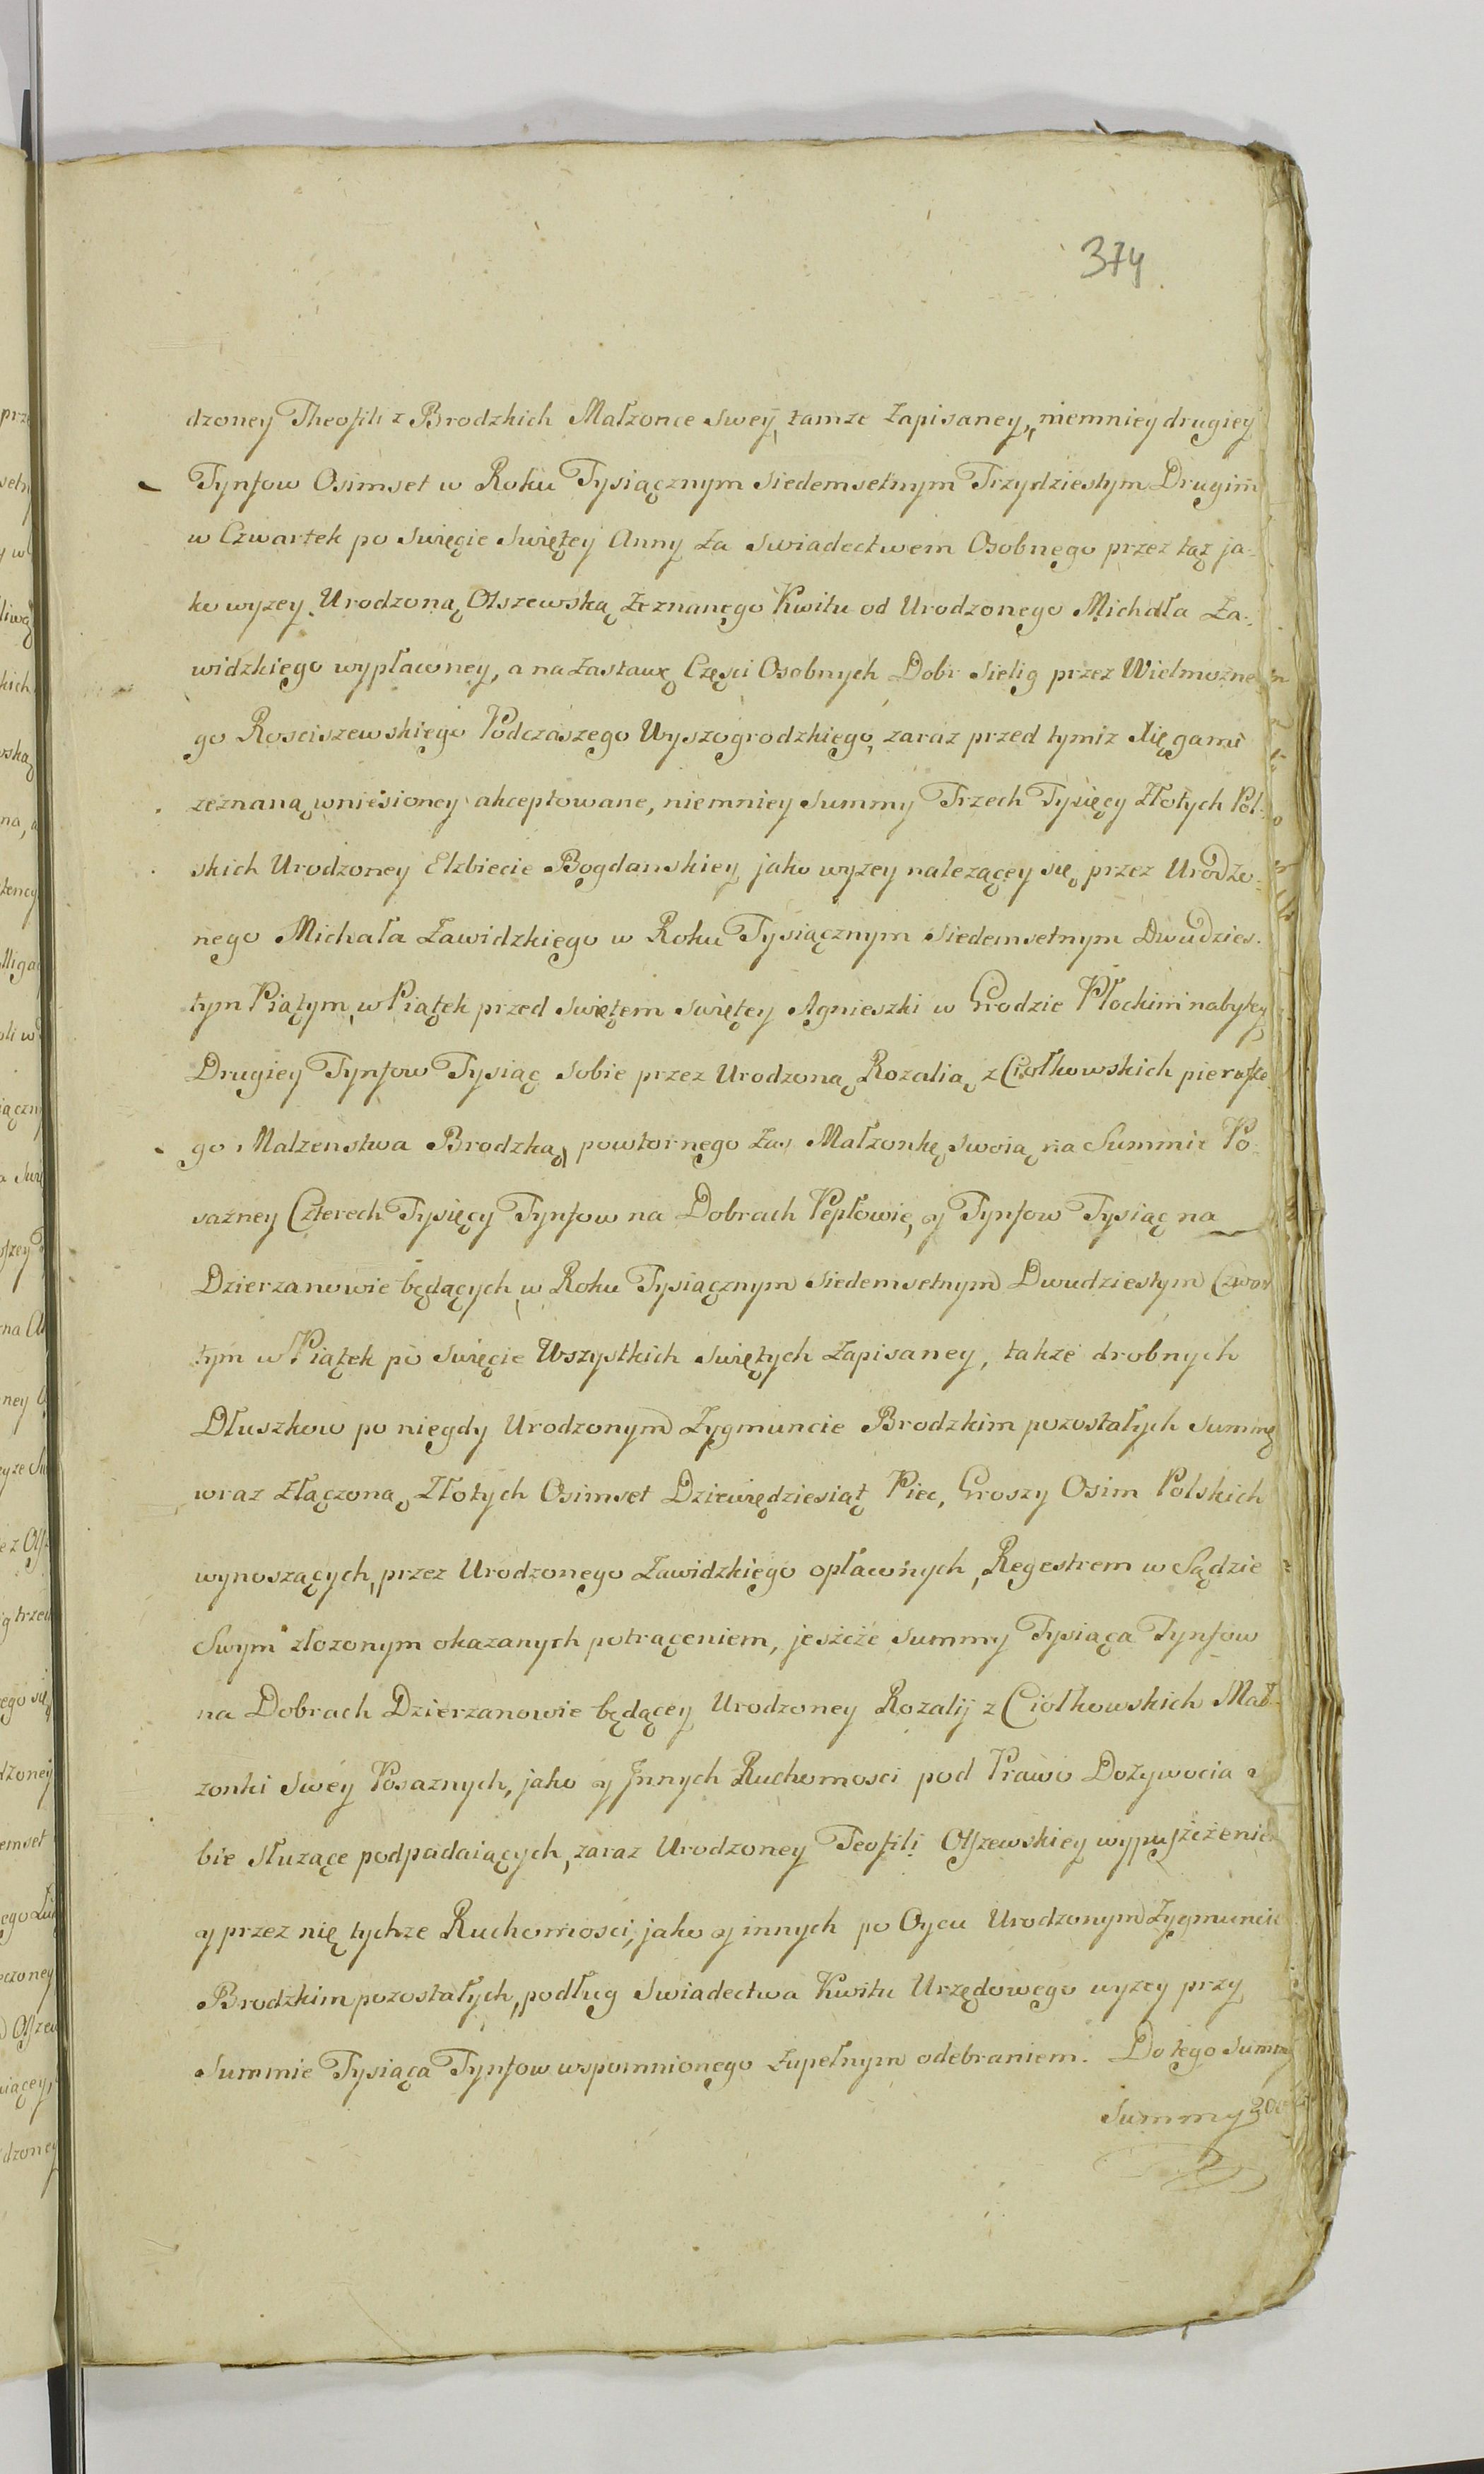 374
dzoney Theofili z Brodzkich Małzonce swey, tamze Zapisaney, niemniey drugiey
Tynfow Osimset w Roku Tysiącznym Siedemsetnym Trzydziestym Drugim
w Czwartek po Swięcie Swiętey Anny Za Swiadectwem Osobnego przez taz ja-
ko wyzey Urodzoną Olszewską Zeznanego Kwitu od Urodzonego Michała Za-
widzkiego wypłaconey, a na Zastawę Częsci Osobnych Dobr Sielig przez Wielmozne-
go Rosciszewskiego Podczaszego Wyszogrodzkiego, zaraz przed tymiz Xięgami
zeznaną wniesioney akceptowane, niemniey Summy Trzech Tysięcy Złotych Pol-
skich Urodzoney Elzbiecie Bogdanskiey jako wyzey nalezącey się przez Urodzo-
nego Michała Zawidzkiego w Roku Tysiącznym Siedemsetnym Dwudzies-
tym Piątym, w Piątek przed Swiętem Swiętey Agnieszki w Grodzie Płockim nabytey
Drugiey Tynfow Tysiąc sobie przez Urodzoną Rozalią z Ciołkowskich pierwsze-
go Malzenstwa Brodzką, powtornego Zas Małzonkę swoią na Summie Po-
sazney Czterech Tysięcy Tynfow na Dobrach Pepłowie, y Tynfow Tysiąc na
Dzierzanowie będących w Roku Tysiącznym Siedemsetnym Dwudziestym Czwar
tym w Piątek po Swięcie Wszystkich Swiętych Zapisaney, takze drobnych
Dłuszkow po niegdy Urodzonym Zygmuncie Brodzkim pozostałych Summę
wraz złączoną Złotych Osimset Dziewiędziesiąt Piec, Groszy Osim Polskich
wynoszących, przez Urodzonego Zawidzkiego opłaconych, Regestrem w Sądzie
Swym złozonym okazanych potrąceniem, jeszcze Summy Tysiąca Tynfow
na Dobrach Dzierzanowie będącey Urodzoney Rozalij z Ciołkowskich Mał-
zonki Swey Posaznych, jako y Jnnych Ruchomosci pod Prawo Dozywocia
bie słuzące podpadaiących, zaraz Urodzoney Teofili Olszewskiey wypuszczeniem
y przez nię tychze Ruchomosci, jako y innych po Oycu Urodzonym Zygmuncie
Brodzkim pozostałych, podług Swiadectwa Kwitu Urzędowego wyzey przy
Summie Tysiąca Tynfow wspomnionego Zupełnym odebraniem. Do tego Summy
Summy